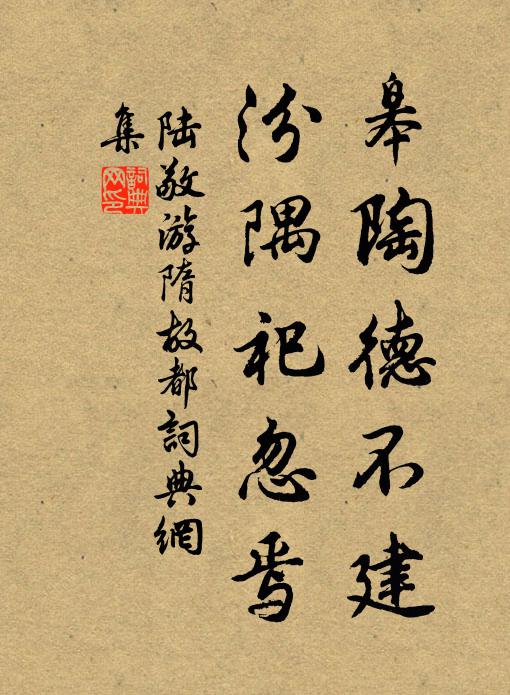 皋陶德不建
汾隅祀忽焉
陆敬游隋故都詞典網
集
詞典网印